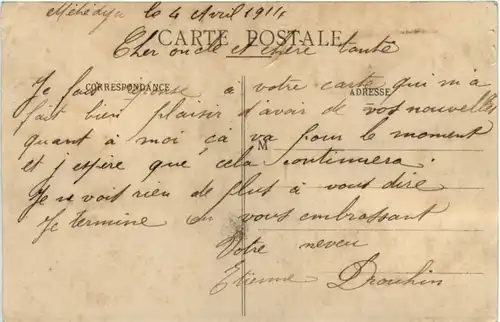 Méhédya le 4 Avril 1914
CARTE POSTALE
Cher oncle et chère tante
CORRESPONDANCE
ADRESSE
Je fais réponse a votre carte qui m'a
fait bien plaisir d'avoir de vos nouvelles
quant à moi ça va pour le moment
M
et j'espère que cela continuera.
Je ne vois rien de plus à vous dire
Je termine en vous embrassant
Votre neveu
Etienne Drouhin